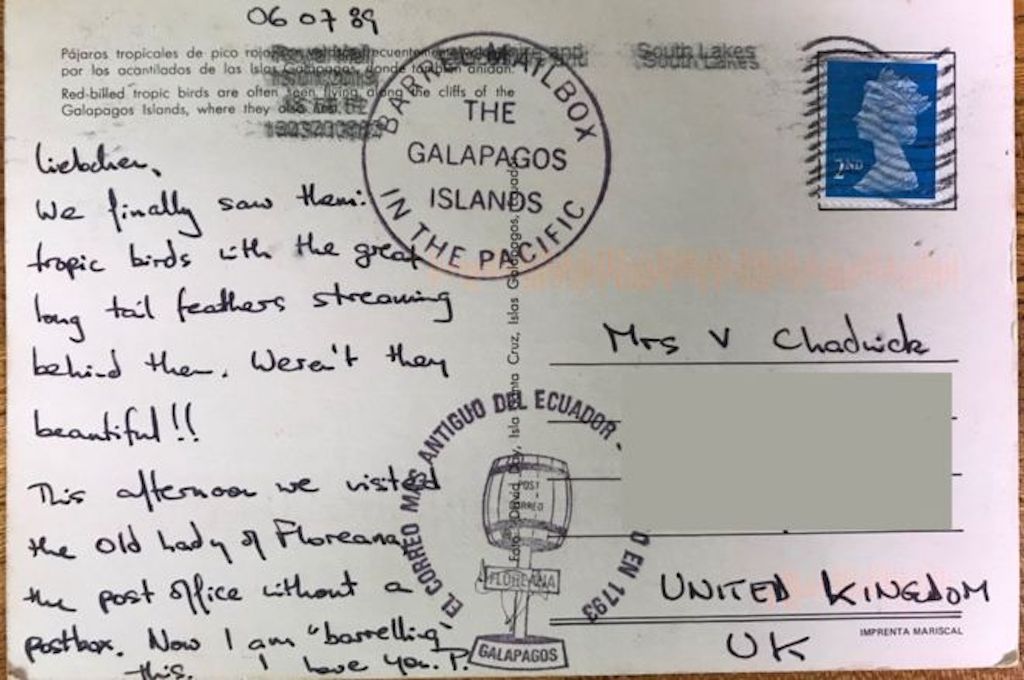 06 07 89
Pájaros tropicales de pico
por los acantilados de las Islas Galápagos, donde también anidan.
Red-billed tropic birds are often seen flying along the cliffs of the
Galapagos Islands, where they also
South Lakes
South Lakes
BARREL MAILBOX
THE
GALAPAGOS
ISLANDS
IN THE PACIFIC
2ND
Liebchen,
We finally saw them:
tropic birds with the great
long tail feathers streaming
behind them. Weren't they
beautiful!!
This afternoon we visited
the Old Lady of Floreana,
the post office without a
postbox. Now I am "barrelling"
this. I love you. P.
David Day, Isla Santa Cruz, Islas Galápagos, Ecuador
Mrs V Chadwick
UNITED KINGDOM
UK
IMPRENTA MARISCAL
EL CORREO MAS ANTIGUO DEL ECUADOR
O EN 1793
POST
CORREO
FLOREANA
GALAPAGOS